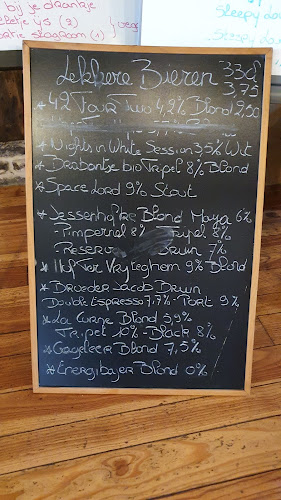 bij je drankje
sleepy do
Lekkere Bieren 33cl
3,75
* 42 Two 4,2% Blond 2,50
* Nights in White Session 3,5% Wit
* Brabantse bio Tripel 8% Blond
* Space Lord 9% Stout
* Jessenhofke Blond Maya 6%
- Pimpernel 8% - Tripel 8%
- Reserv Bruin 7%
* Hof Ter Vryleghem 9% Blond
* Broeder Jacob Bruin
Double Espresso 7,7% - Port 9%
* La Curne Blond 5,9%
Tripel 10% - Black 8%
* Gageleer Blond 7,5%
* Energibajer Blond 0%